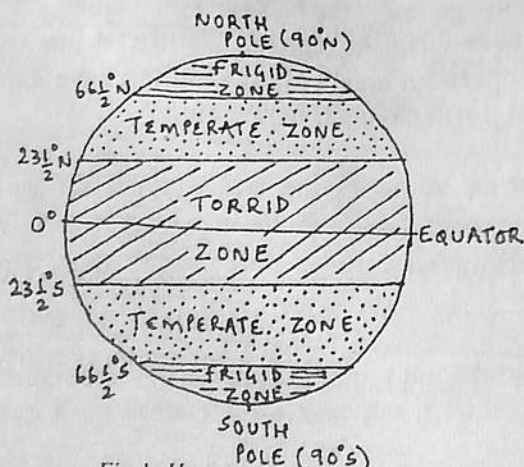 NORTH
POLE (90°N)
FRIGID
66½°N
ZONE
TEMPERATE ZONE
23½°N
TORRID
0°
EQUATOR
ZONE
23½°S
TEMPERATE ZONE
66½°S
FRIGID
ZONE
SOUTH
POLE (90°S)